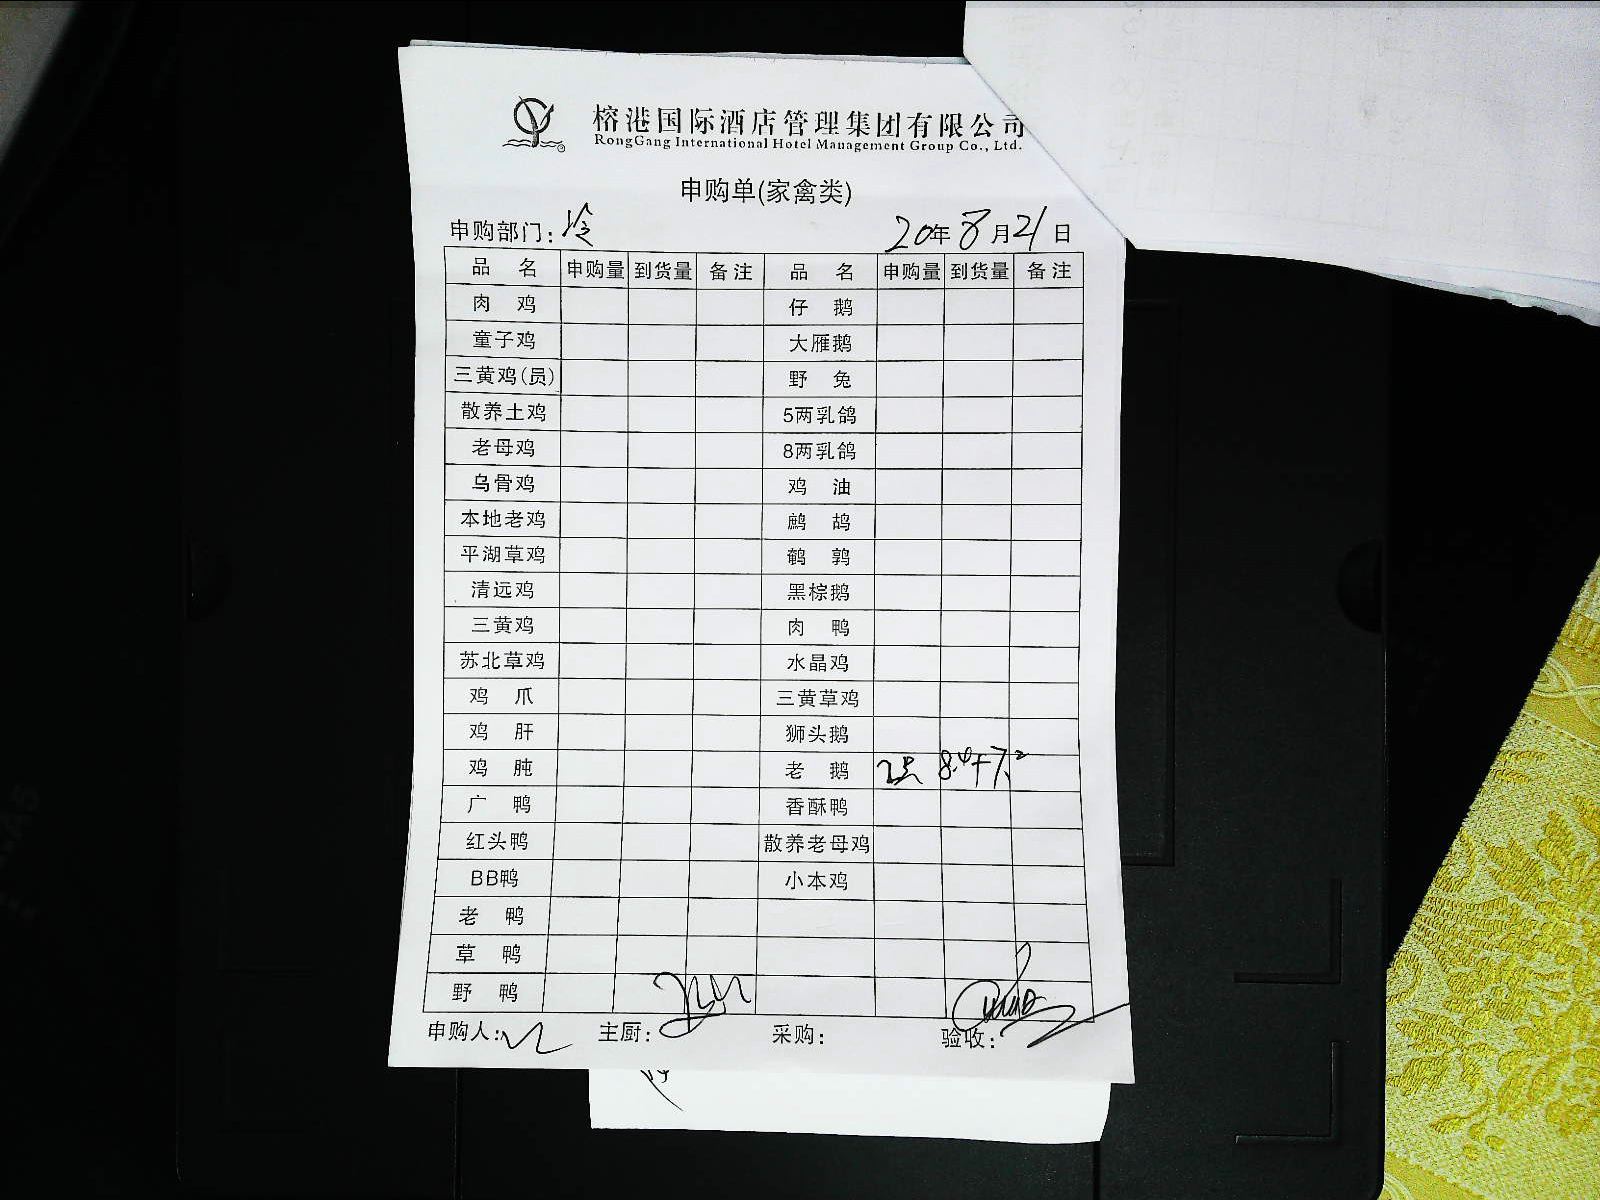 榕港国际酒店管理集团有限公司
RongGang International Hotel Management Group Co., Ltd.
申购单(家禽类)
申购部门: 冷 20年8月21日
品 名 申购量 到货量 备注 品 名 申购量 到货量 备注
肉 鸡 仔 鹅
童子鸡 大雁鹅
三黄鸡(员) 野 兔
散养土鸡 5两乳鸽
老母鸡 8两乳鸽
乌骨鸡 鸡 油
本地老鸡 鹧 鸪
平湖草鸡 鹌 鹑
清远鸡 黑棕鹅
三黄鸡 肉 鸭
苏北草鸡 水晶鸡
鸡 爪 三黄草鸡
鸡 肝 狮头鹅
鸡 肫 老 鹅 2只 8.4+7.2
广 鸭 香酥鸭
红头鸭 散养老母鸡
BB鸭 小本鸡
老 鸭
草 鸭
野 鸭
申购人: 主厨: 采购: 验收: